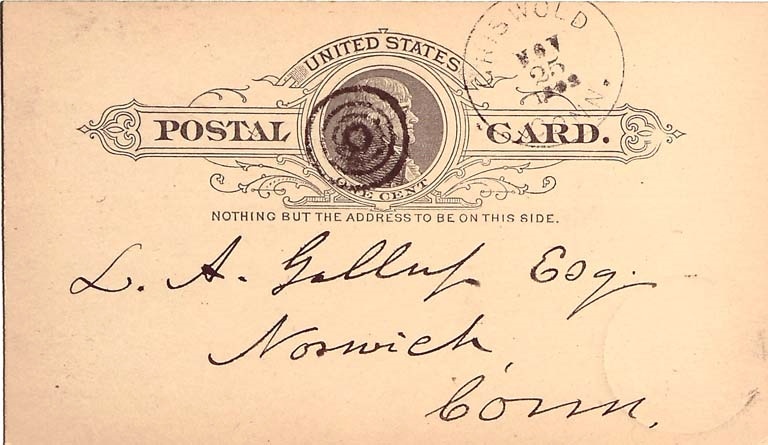 GRISWOLD
NOV
25
CONN.
UNITED STATES
POSTAL CARD.
ONE CENT
NOTHING BUT THE ADDRESS TO BE ON THIS SIDE.
L. A. Gallup Esq.
Norwich
Conn.